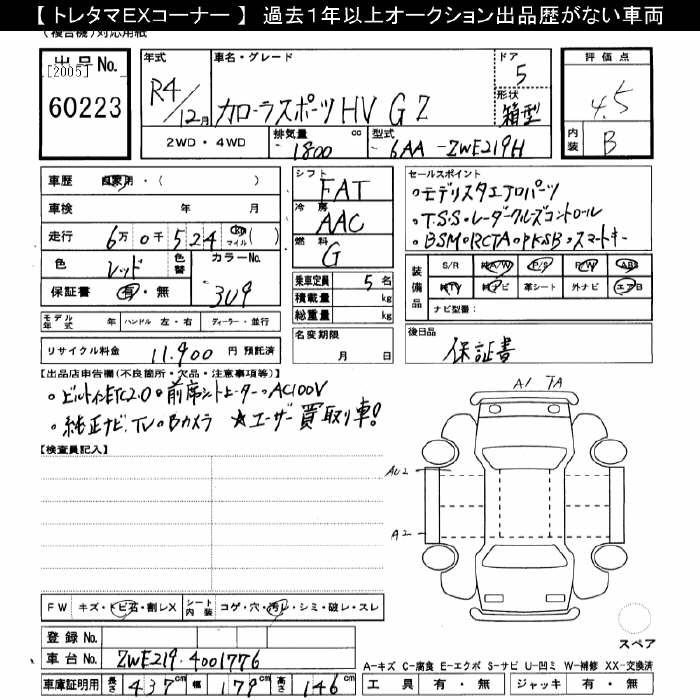 【 トレタマEXコーナー 】 過去1年以上オークション出品歴がない車両
(複合機)対応用紙
出品No.
[2005]
60223
年式
R4/12月
車名・グレード
カローラスポーツHV G Z
ドア
5
形状
箱型
評価点
4.5
内装
B
2WD・4WD
排気量
1800
cc
型式
6AA-ZWE219H
車歴
自家用・( )
車検
年 月
走行
6万0千524
km
マイル
( )
色
レッド
色替
カラーNo.
3U9
保証書
有・無
モデル年式
年
ハンドル
左・右
ディーラー・並行
リサイクル料金
11,900
円 預託済
シフト
FAT
冷房
AAC
燃料
G
乗車定員
5
名
積載量
kg
総重量
kg
名変期限
月 日
セールスポイント
・モデリスタエアロパーツ
・T.S.S・レーダークルーズコントロール
・BSM・RCTA・PKSB・スマートキー
装備品
S/R
純A/W
P/S
P/W
ABS
純TV
純ナビ
革シート
外ナビ
エアB
ナビ型番:
後日品
保証書
【出品店申告欄(不良箇所・欠品・注意事項等)】
・ビルトインETC2.0・前席シートヒーター・AC100V
・純正ナビ.TV・Bカメラ ★ユーザー買取り車!
【検査員記入】
A1
AU2
A2
スペア
FW
キズ・トビ石・割レX
シート内装
コゲ・穴・汚レ・シミ・破レ・スレ
登録No.
車台No.
ZWE219-4001776
車庫証明用
長さ
437
cm
幅
179
cm
高さ
146
cm
A-キズ C-腐食 E-エクボ S-サビ U-凹ミ W-補修 XX-交換済
工具
有・無
ジャッキ
有・無